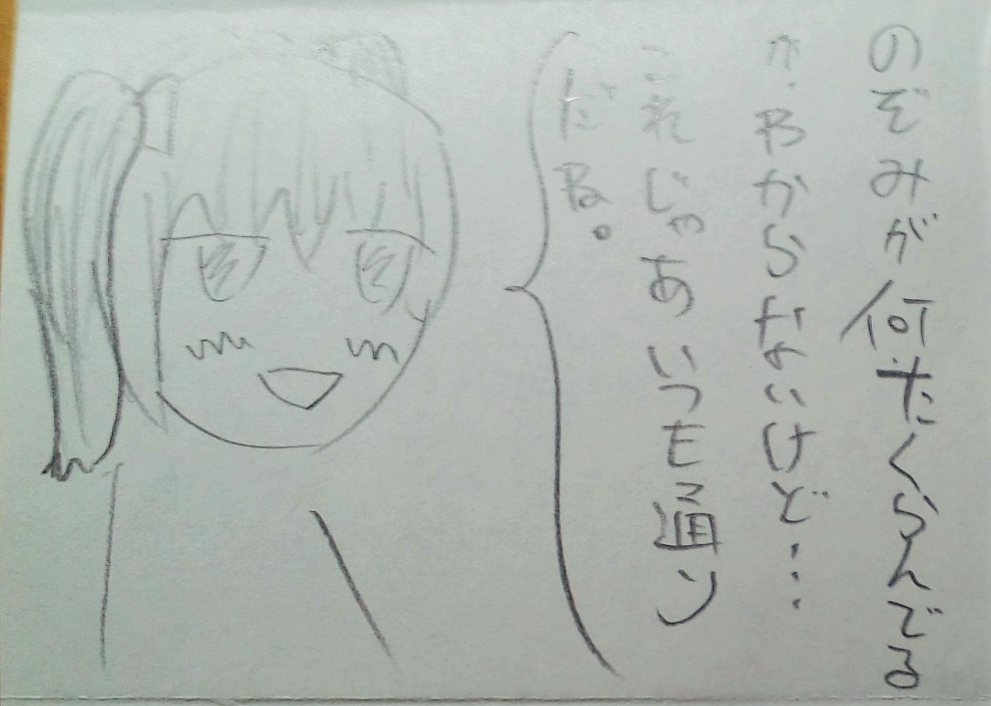 のぞみが何たくらんでる
か、わからないけど…
これじゃあいつも通り
だね。